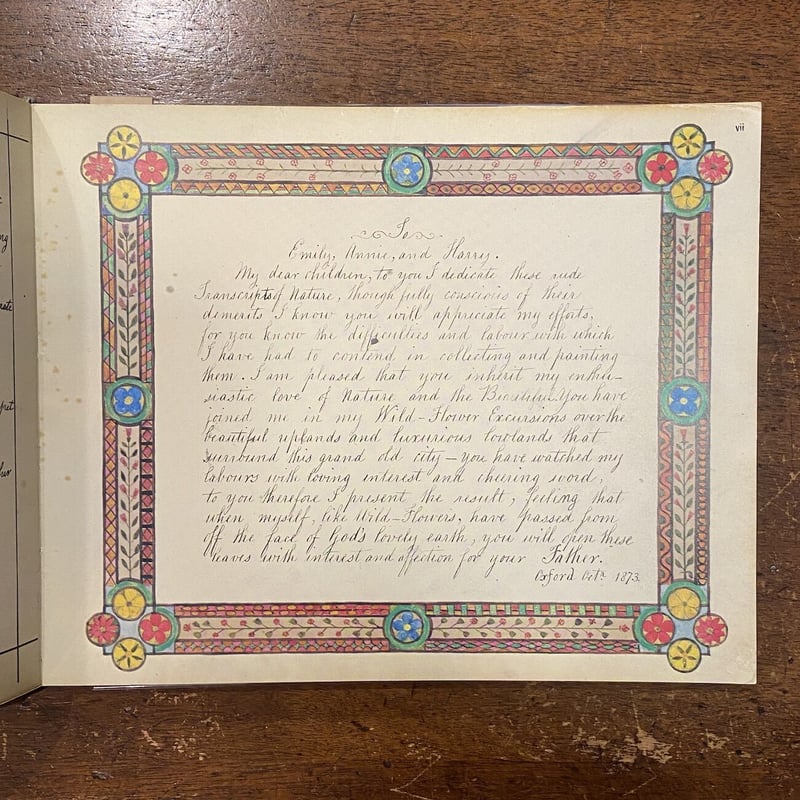 vii
To
Emily, Annie, and Harry.
My dear children, to you I dedicate these rude
Transcripts of Nature, though fully conscious of their
demerits I know you will appreciate my efforts,
for you know the difficulties and labour with which
I have had to contend in collecting and painting
them. I am pleased that you inherit my enthu-
siastic love of Nature and the Beautiful. You have
joined me in my Wild-Flower Excursions over the
beautiful uplands and luxurious lowlands that
surround this grand old city – you have watched my
labours with loving interest and cheering word,
to you therefore I present the result, feeling that
when myself, like Wild-Flowers, have passed from
off the face of God's lovely earth, you will open these
leaves with interest and affection for your Father.
Oxford Octr. 1873.